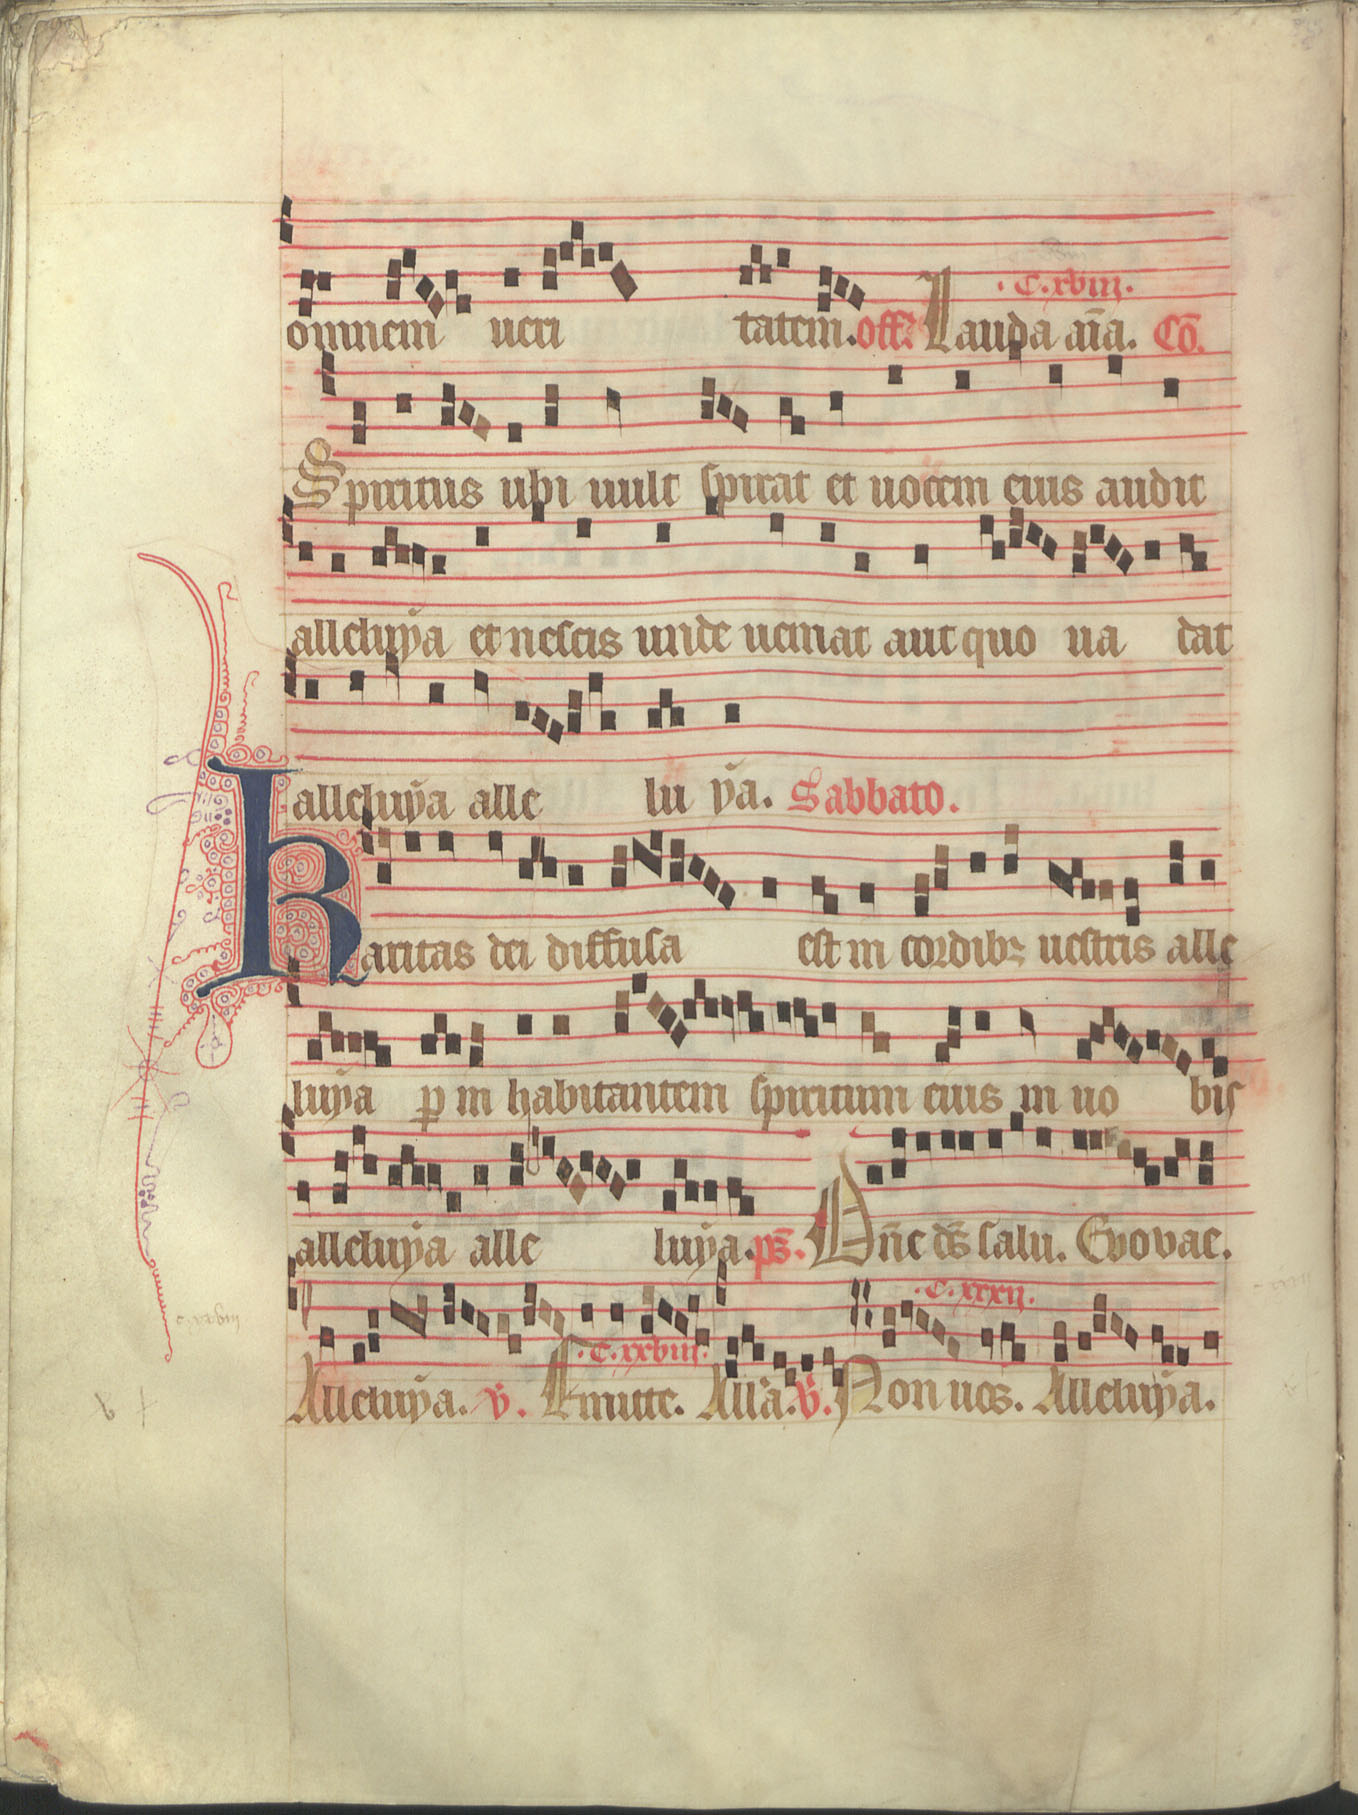 .C.xviii.
omnem ueri tatem. off. Lauda aīa. Cō.
Spiritus ubi uult spirat et uocem eius audit
alleluÿa et nescis unde ueniat aut quo ua dat
alleluÿa alle lu ÿa. Sabbato.
Karitas dei diffusa est in cordibꝫ uestris alle
luÿa ꝑ in habitantem spiritum eius in uo bis
alleluÿa alle luÿa. ps̄. Dn̄e ds̄ salu. Evovae.
.C.xxviii. .C.xxxii.
Alleluÿa. v̄. Emitte. All'a. v̄. Non uos. Alleluÿa.